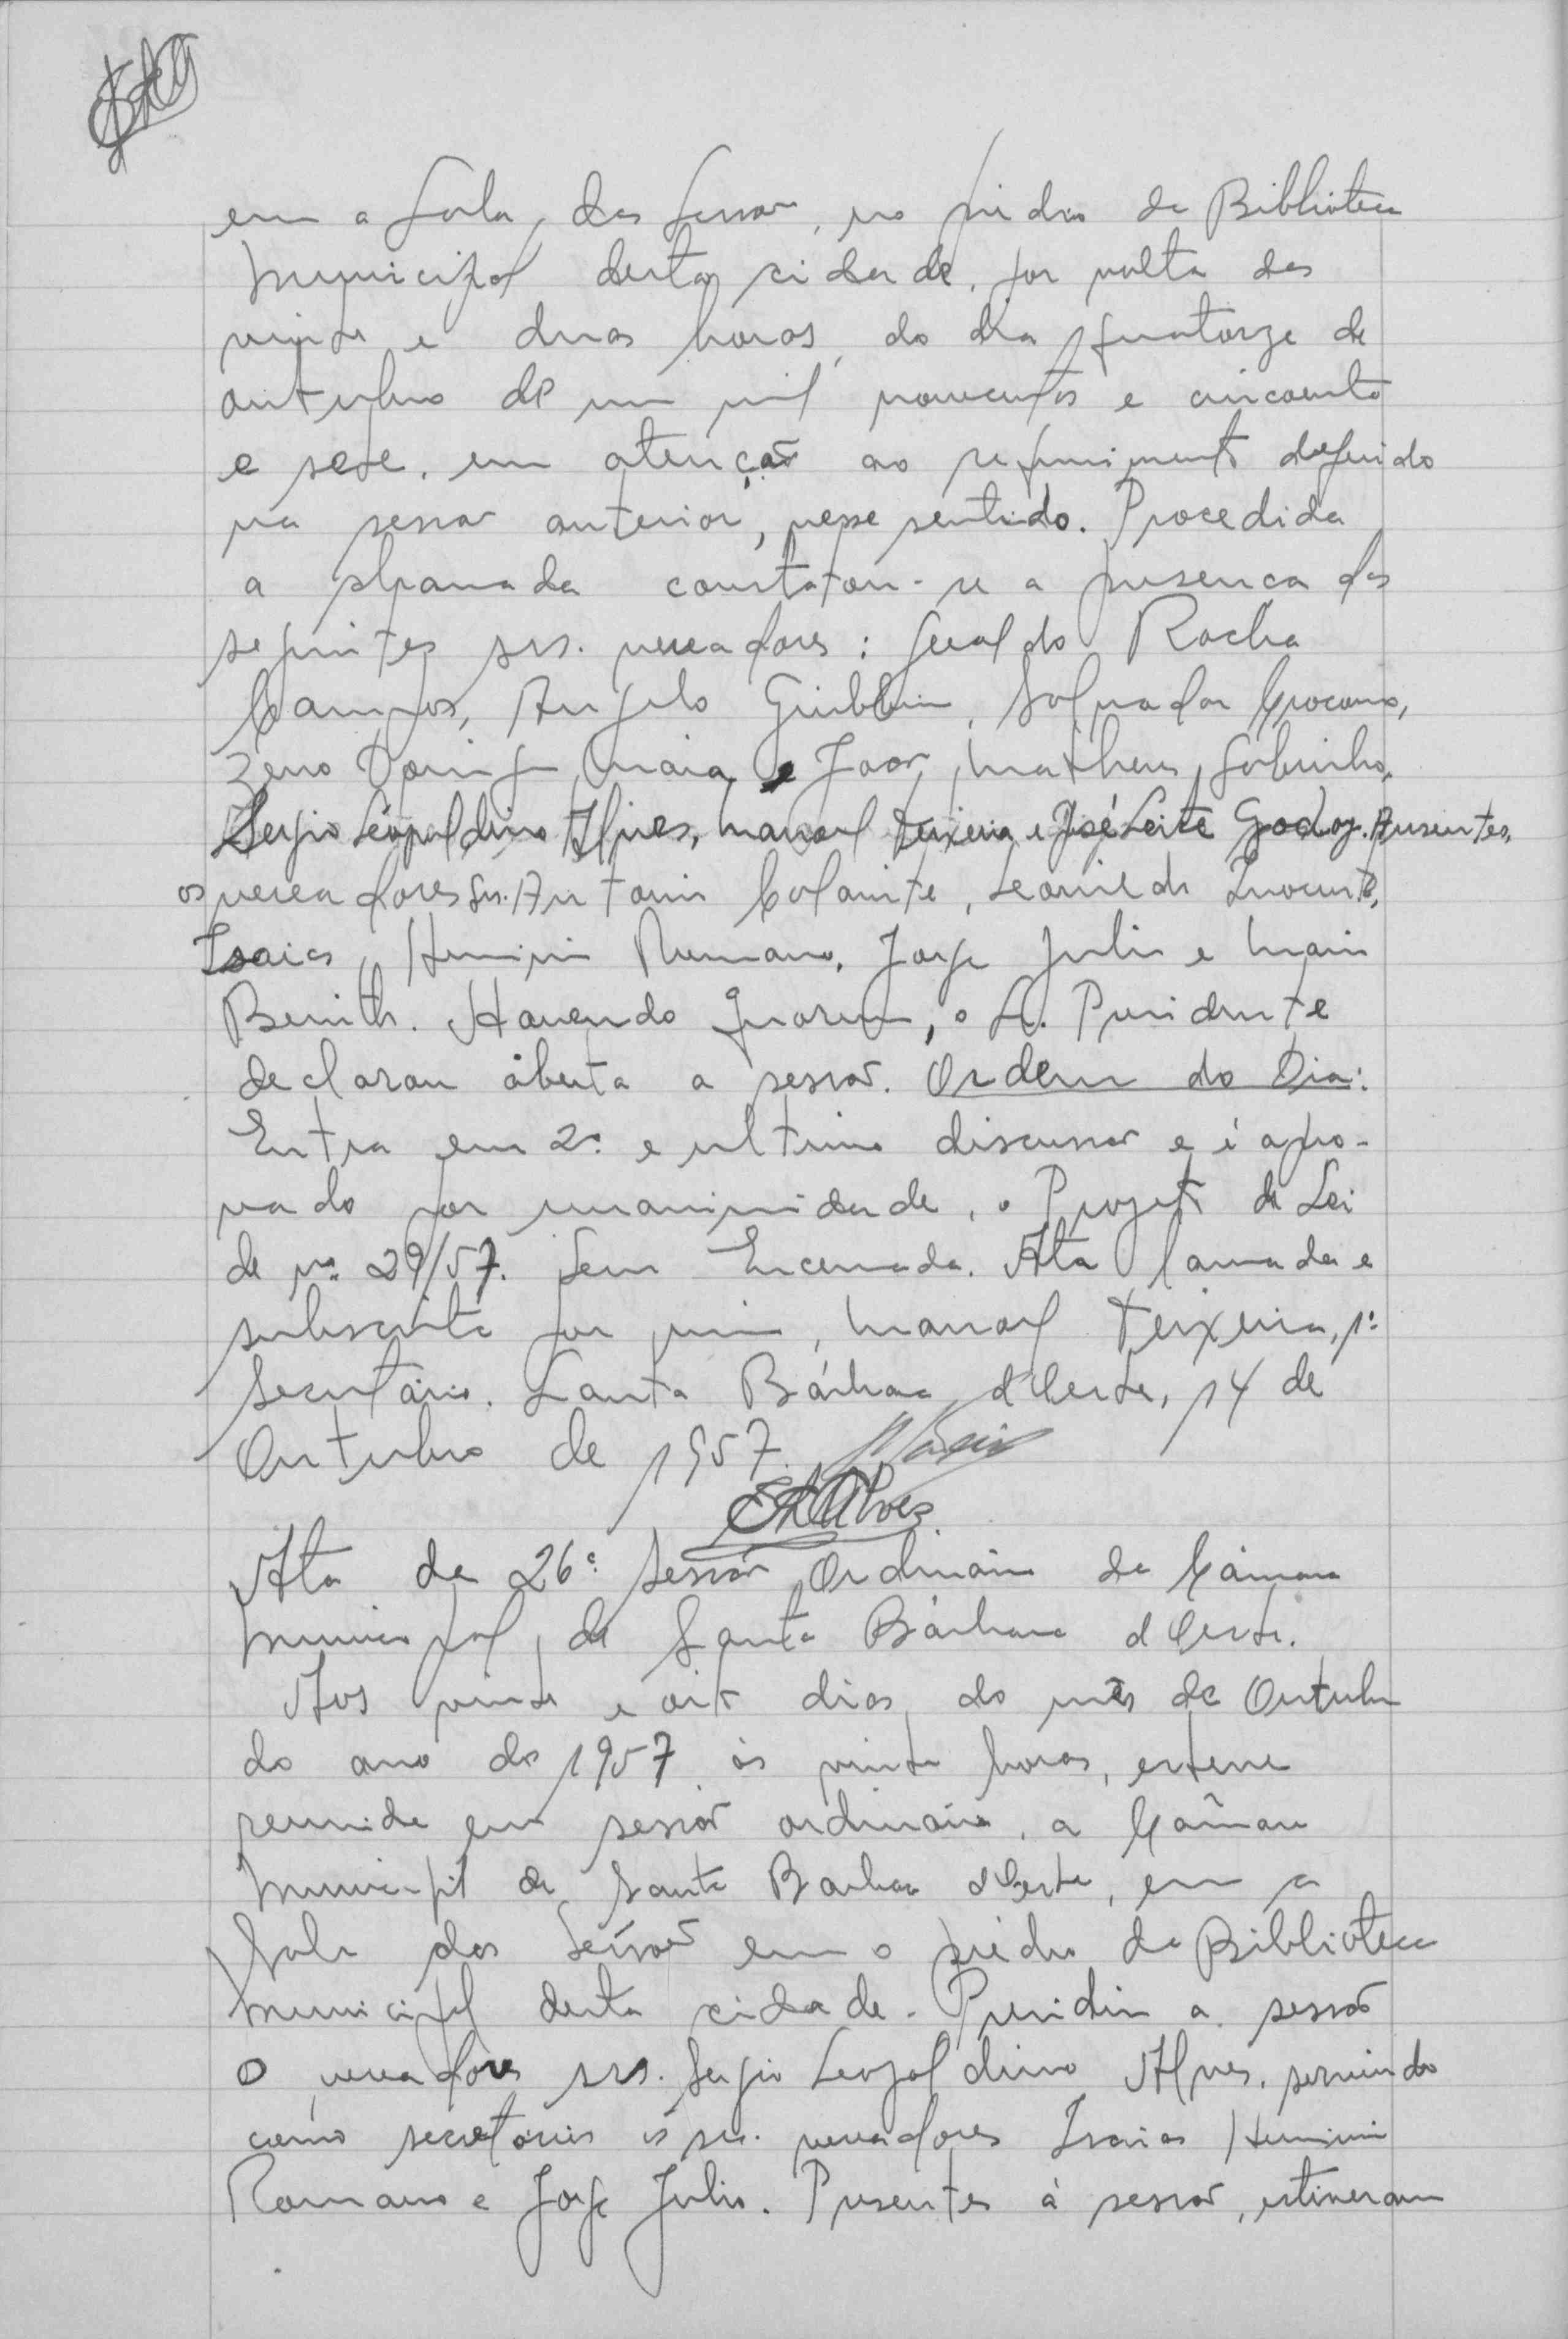 em a Sala das Sessões, no prédio da Biblioteca
Municipal desta cidade, por volta das
vinte e duas horas, do dia quatorze de
outubro de um mil novecentos e cincoenta
e sete, em atenção ao requerimento deferido
na sessão anterior, nesse sentido. Procedida
a chamada constatou-se a presença dos
seguintes srs. vereadores: Geraldo Rocha
Campos, Angelo Giubbina, Salvador Crocomo,
Zeno Domingues Maia e João Matheus Sobrinho,
Sergio Leopoldino Alves, Manoel Teixeira e José Leite Godoy. Ausentes,
os vereadores srs. Antonio Colanite, Leonildo Inocente,
Isaias Herminio Romano, Jorge Julio e Mario
Benith. Havendo Quorum, o Sr. Presidente
declarou aberta a sessão. Ordem do Dia:
Entra em 2ª e ultima discussão e é apro-
vado por unanimidade, o Projeto de Lei
de nº 29/57. Sem Encerrada. Ata lavrada e
subscrita por mim, Manoel Teixeira, 1º
Secretário. Santa Bárbara d'Oeste, 14 de
Outubro de 1957.
SLAlves
Ata da 26ª Sessão Ordinária da Câmara
Municipal de Santa Bárbara d'Oeste.
Aos vinte e oito dias do mês de Outubro
do ano de 1957, às vinte horas, esteve
reunida em sessão ordinária, a Câmara
Municipal de Santa Barbara d'Oeste, em a
Sala das Sessões em o prédio da Biblioteca
Municipal desta cidade. Presidiu a sessão
o vereadores srs. Sergio Leopoldino Alves, servindo
como secretários os srs. vereadores Isaias Herminio
Romano e Jorge Julio. Presentes à sessão, estiveram